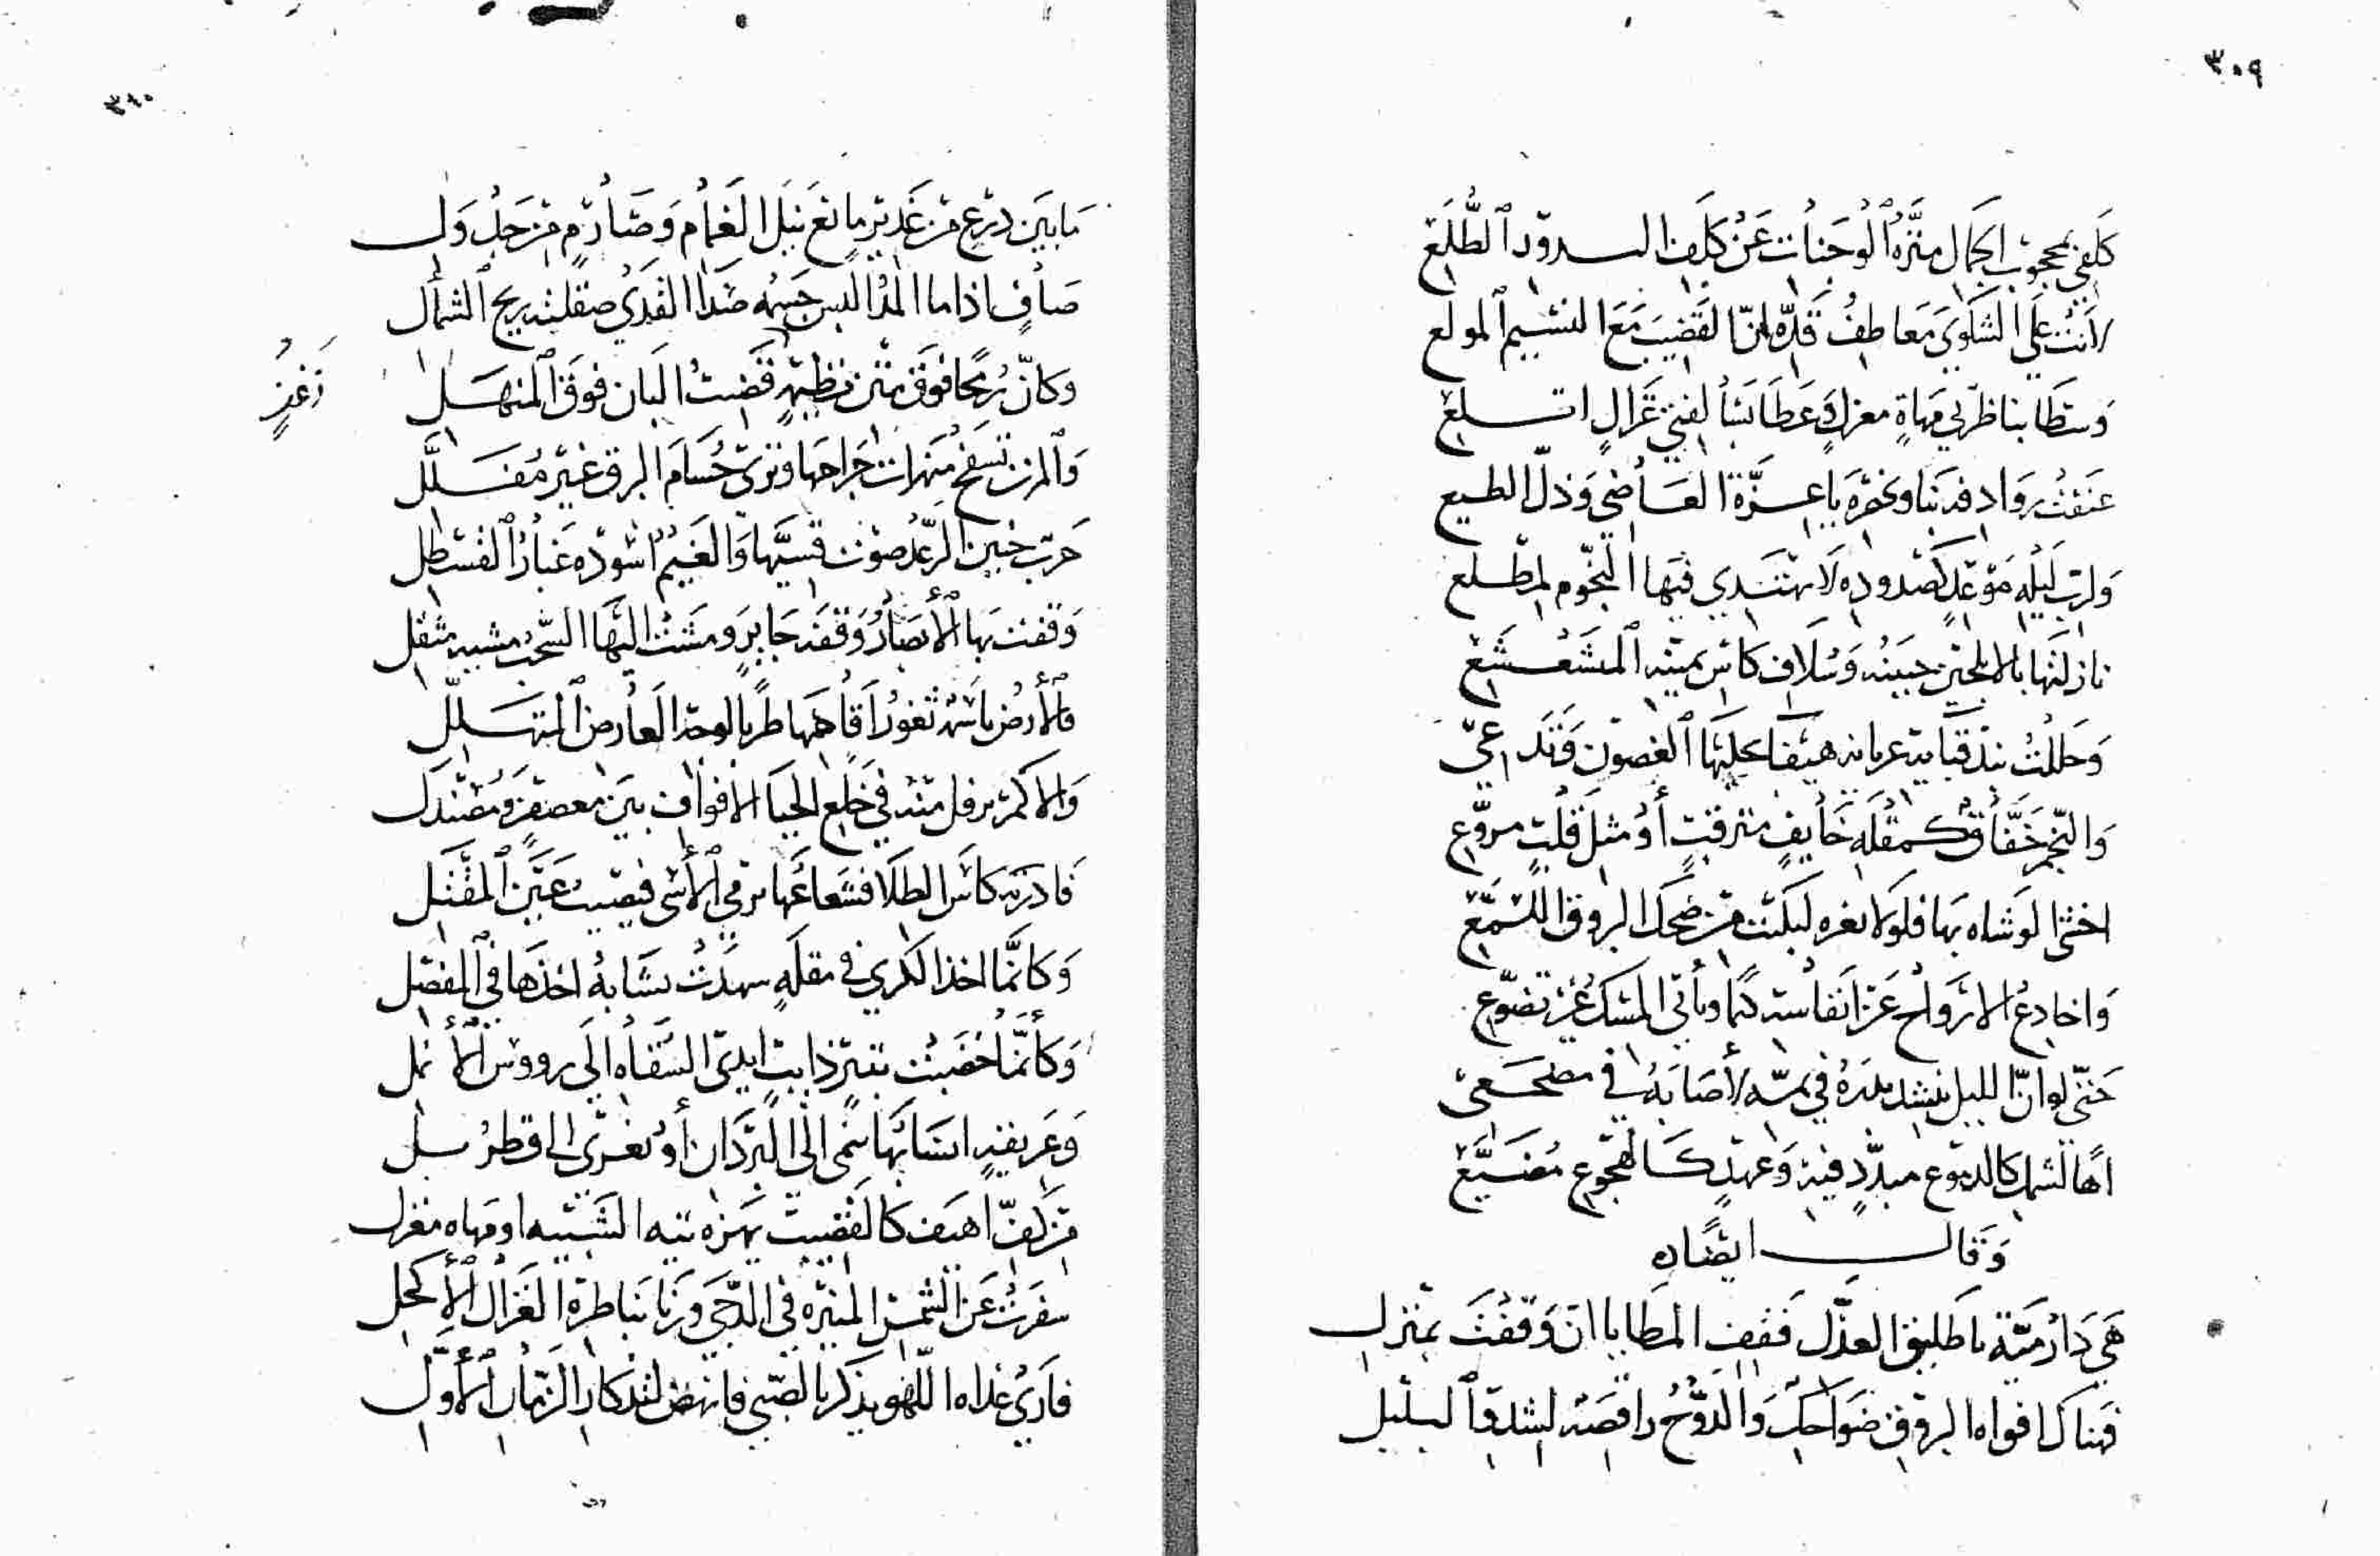 ٣٠٩
كَلَفي بمحجوب الجمال منزّه الوجنات عن كلف البدور الطلع
لانت على الشكوى معاطف قدّه انّ القضيب مع النسيم المولع
وسطا بناظرتي مهاة مغزل وعطا بسالفتي غزال اتلع
عنفت روادفه بنا وبخصره يا عزّة العاصي وذلّ الطيع
ولرب ليلة موعد كصدوده لا تهتدي فيها النجوم لمطلع
نازلتها بالابلجين جبينه وسلاف كاس يمينه المشعشع
وحللت بند قبايه عن بانه هيفا بحليها الغصون فتدعي
والنجم خفّاق كمقلة خايف مترقب أو مثل قلب مروّع
اخشى الوشاه بها فلولا ثغره لبكيت من ضحك البروق اللمّع
واخادع الارواح عن انفاسه كتما ويأتي المسك غير تضوّع
حتّى لو انّ الليل ينشد بدره في تمّه لأصابه في مضجعي
اها لشمل كالدموع مبدّد فيه وعهد كالهجوع مضيّع
وقال ايضاه
هي دار ميّة يا طليق العذّل فقف المطايا ان وقفت بمنزل
فهناك افواه البروق ضواحك والدوح راقصه لشدو البلبل
٣١٠
ما بين درع من غدير مانع نبل الغمام وصارم من جدول
صاف اذا ما المدّ البس جسمه صدا القذى صقلته ريح الشمأل
وكانّ رمحا فوق متن قضيب البان فوق المنهل
والمزن تسفح منهرات جراحها وترى حسام البرق غير مفلّل
حرب حنين الرعد صوت قسيّها والغيم اسوده غبار القسطل
وقفت بها الأبصار وقفه حاير ومشت اليها السحب مشيه مثقل
فالأرض باسمه ثغور اقاحها طربا لوجه العارض المتهلّل
والاكم ترفل منه في خلع الحيا الافواف بين معصفر ومصندل
فادر به كاس الطلا فشعاعها يرمي الأسى فيصيب عين المقتل
وكانّما اخذ الكرى في مقلة سهدت تشابه اخذها في المفصل
وكأنّما خضبت بتبر ذايب ايدي السقاه الى رووس الأنمل
وعريقه انسابها تنمى الى البردان أو تعزى الى قطربل
من كفّ اهيف كالقضيب يهزه تيه الشبيبه او مهاه مغزل
سفرت عن الشمس المنيره في الدجى ورنا بناظره الغزال الأكحل
فارى غداه اللهو يذكر بالصبى فانهض لتذكار الزمان الأوّل